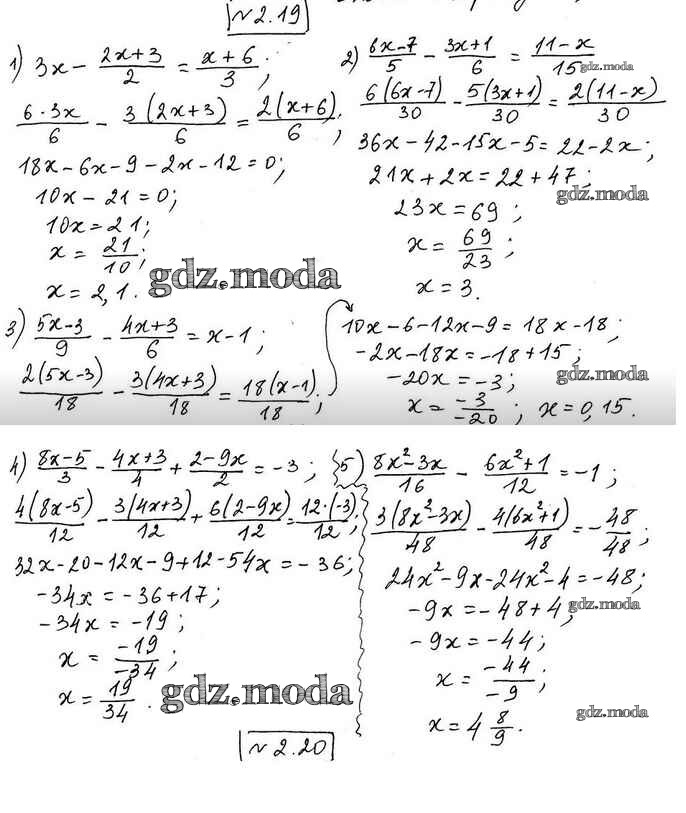 № 2.19
1) 3x - (2x+3)/2 = (x+6)/3;
(6·3x)/6 - 3(2x+3)/6 = 2(x+6)/6;
18x - 6x - 9 - 2x - 12 = 0;
10x - 21 = 0;
10x = 21;
x = 21/10;
x = 2,1.
2) (6x-7)/5 - (3x+1)/6 = (11-x)/15
gdz.moda
6(6x-7)/30 - 5(3x+1)/30 = 2(11-x)/30
36x - 42 - 15x - 5 = 22 - 2x;
21x + 2x = 22 + 47;
gdz.moda
23x = 69;
x = 69/23;
x = 3.
gdz.moda
3) (5x-3)/9 - (4x+3)/6 = x - 1;
2(5x-3)/18 - 3(4x+3)/18 = 18(x-1)/18;
10x - 6 - 12x - 9 = 18x - 18;
-2x - 18x = -18 + 15;
-20x = -3;
gdz.moda
x = -3/-20; x = 0,15.
4) (8x-5)/3 - (4x+3)/4 + (2-9x)/2 = -3;
4(8x-5)/12 - 3(4x+3)/12 + 6(2-9x)/12 = 12·(-3)/12;
32x - 20 - 12x - 9 + 12 - 54x = -36;
-34x = -36 + 17;
-34x = -19;
x = -19/-34;
x = 19/34.
gdz.moda
5) (8x²-3x)/16 - (6x²+1)/12 = -1;
3(8x²-3x)/48 - 4(6x²+1)/48 = -48/48;
24x² - 9x - 24x² - 4 = -48;
-9x = -48 + 4;
gdz.moda
-9x = -44;
x = -44/-9;
x = 4 8/9.
gdz.moda
№ 2.20